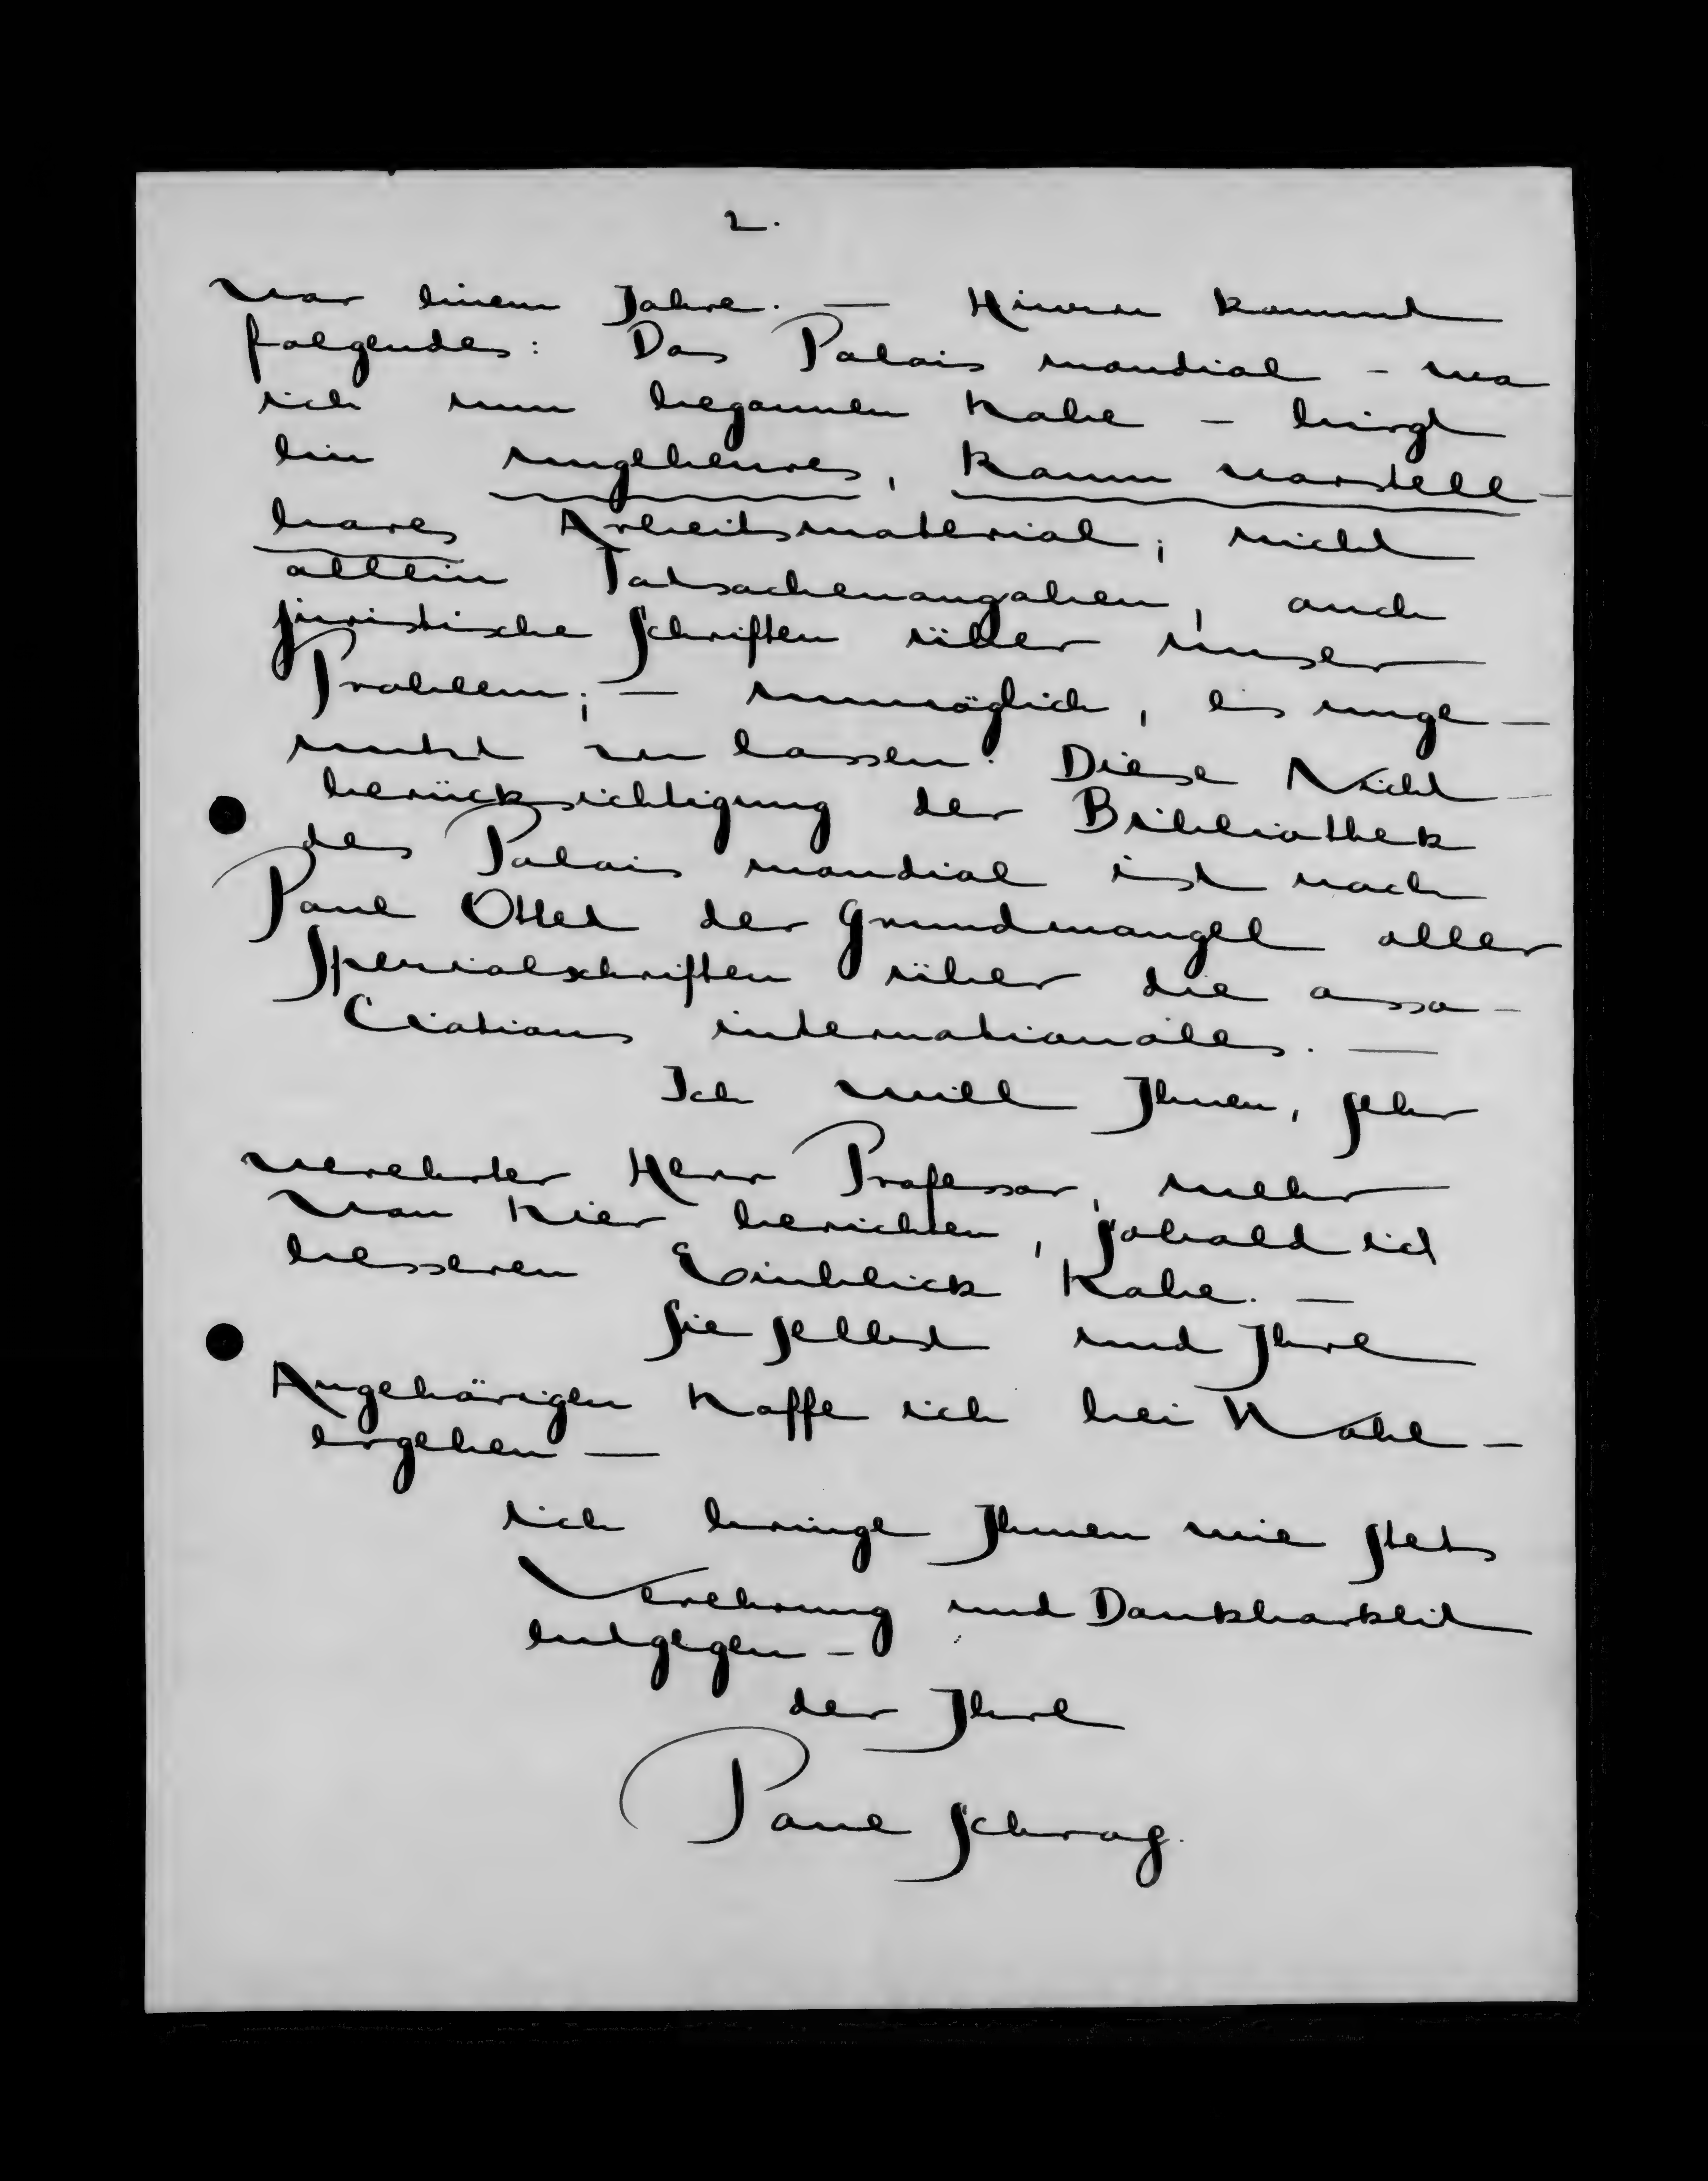 2.
vor einem Jahre. — Hinzu kommt
folgendes: Das Palais mondial – wo
ich nun begonnen habe – birgt
ein ungeheures, kaum vorstell-
bares Arbeitsmaterial; nicht
allein Tatsachenangaben, auch
juristische Schriften über unser
Problem; — unmöglich, es unge-
nutzt zu lassen. Diese Nicht-
berücksichtigung der Bibliothek
des Palais mondial ist nach
Paul Otlet der Grundmangel aller
Spezialschriften über die asso-
ciations internationales. —
Ich will Ihnen, sehr
verehrter Herr Professor, mehr
von hier berichten, sobald ich
besseren Einblick habe. —
Sie selbst und Ihre
Angehörigen hoffe ich bei Wohl-
ergehen —
ich bringe Ihnen wie stets
Verehrung und Dankbarkeit
entgegen –
der Ihre
Paul Schrag.